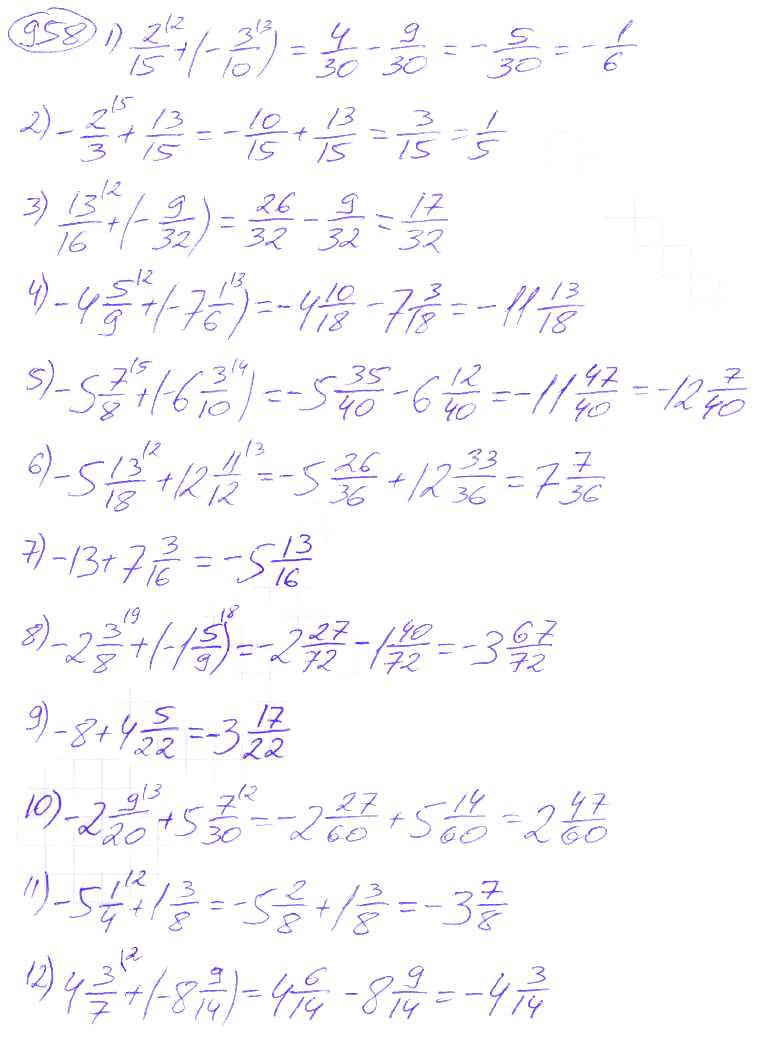 958 1) 2/15 |2 + (- 3/10 |3) = 4/30 - 9/30 = - 5/30 = - 1/6
2) - 2/3 |5 + 13/15 = - 10/15 + 13/15 = 3/15 = 1/5
3) 13/16 |2 + (- 9/32) = 26/32 - 9/32 = 17/32
4) - 4 5/9 |2 + (- 7 1/6 |3) = - 4 10/18 - 7 3/18 = - 11 13/18
5) - 5 7/8 |5 + (- 6 3/10 |4) = - 5 35/40 - 6 12/40 = - 11 47/40 = - 12 7/40
6) - 5 13/18 |2 + 12 11/12 |3 = - 5 26/36 + 12 33/36 = 7 7/36
7) - 13 + 7 3/16 = - 5 13/16
8) - 2 3/8 |9 + (- 1 5/9 |8) = - 2 27/72 - 1 40/72 = - 3 67/72
9) - 8 + 4 5/22 = - 3 17/22
10) - 2 9/20 |3 + 5 7/30 |2 = - 2 27/60 + 5 14/60 = 2 47/60
11) - 5 1/4 |2 + 1 3/8 = - 5 2/8 + 1 3/8 = - 3 7/8
12) 4 3/7 |2 + (- 8 9/14) = 4 6/14 - 8 9/14 = - 4 3/14